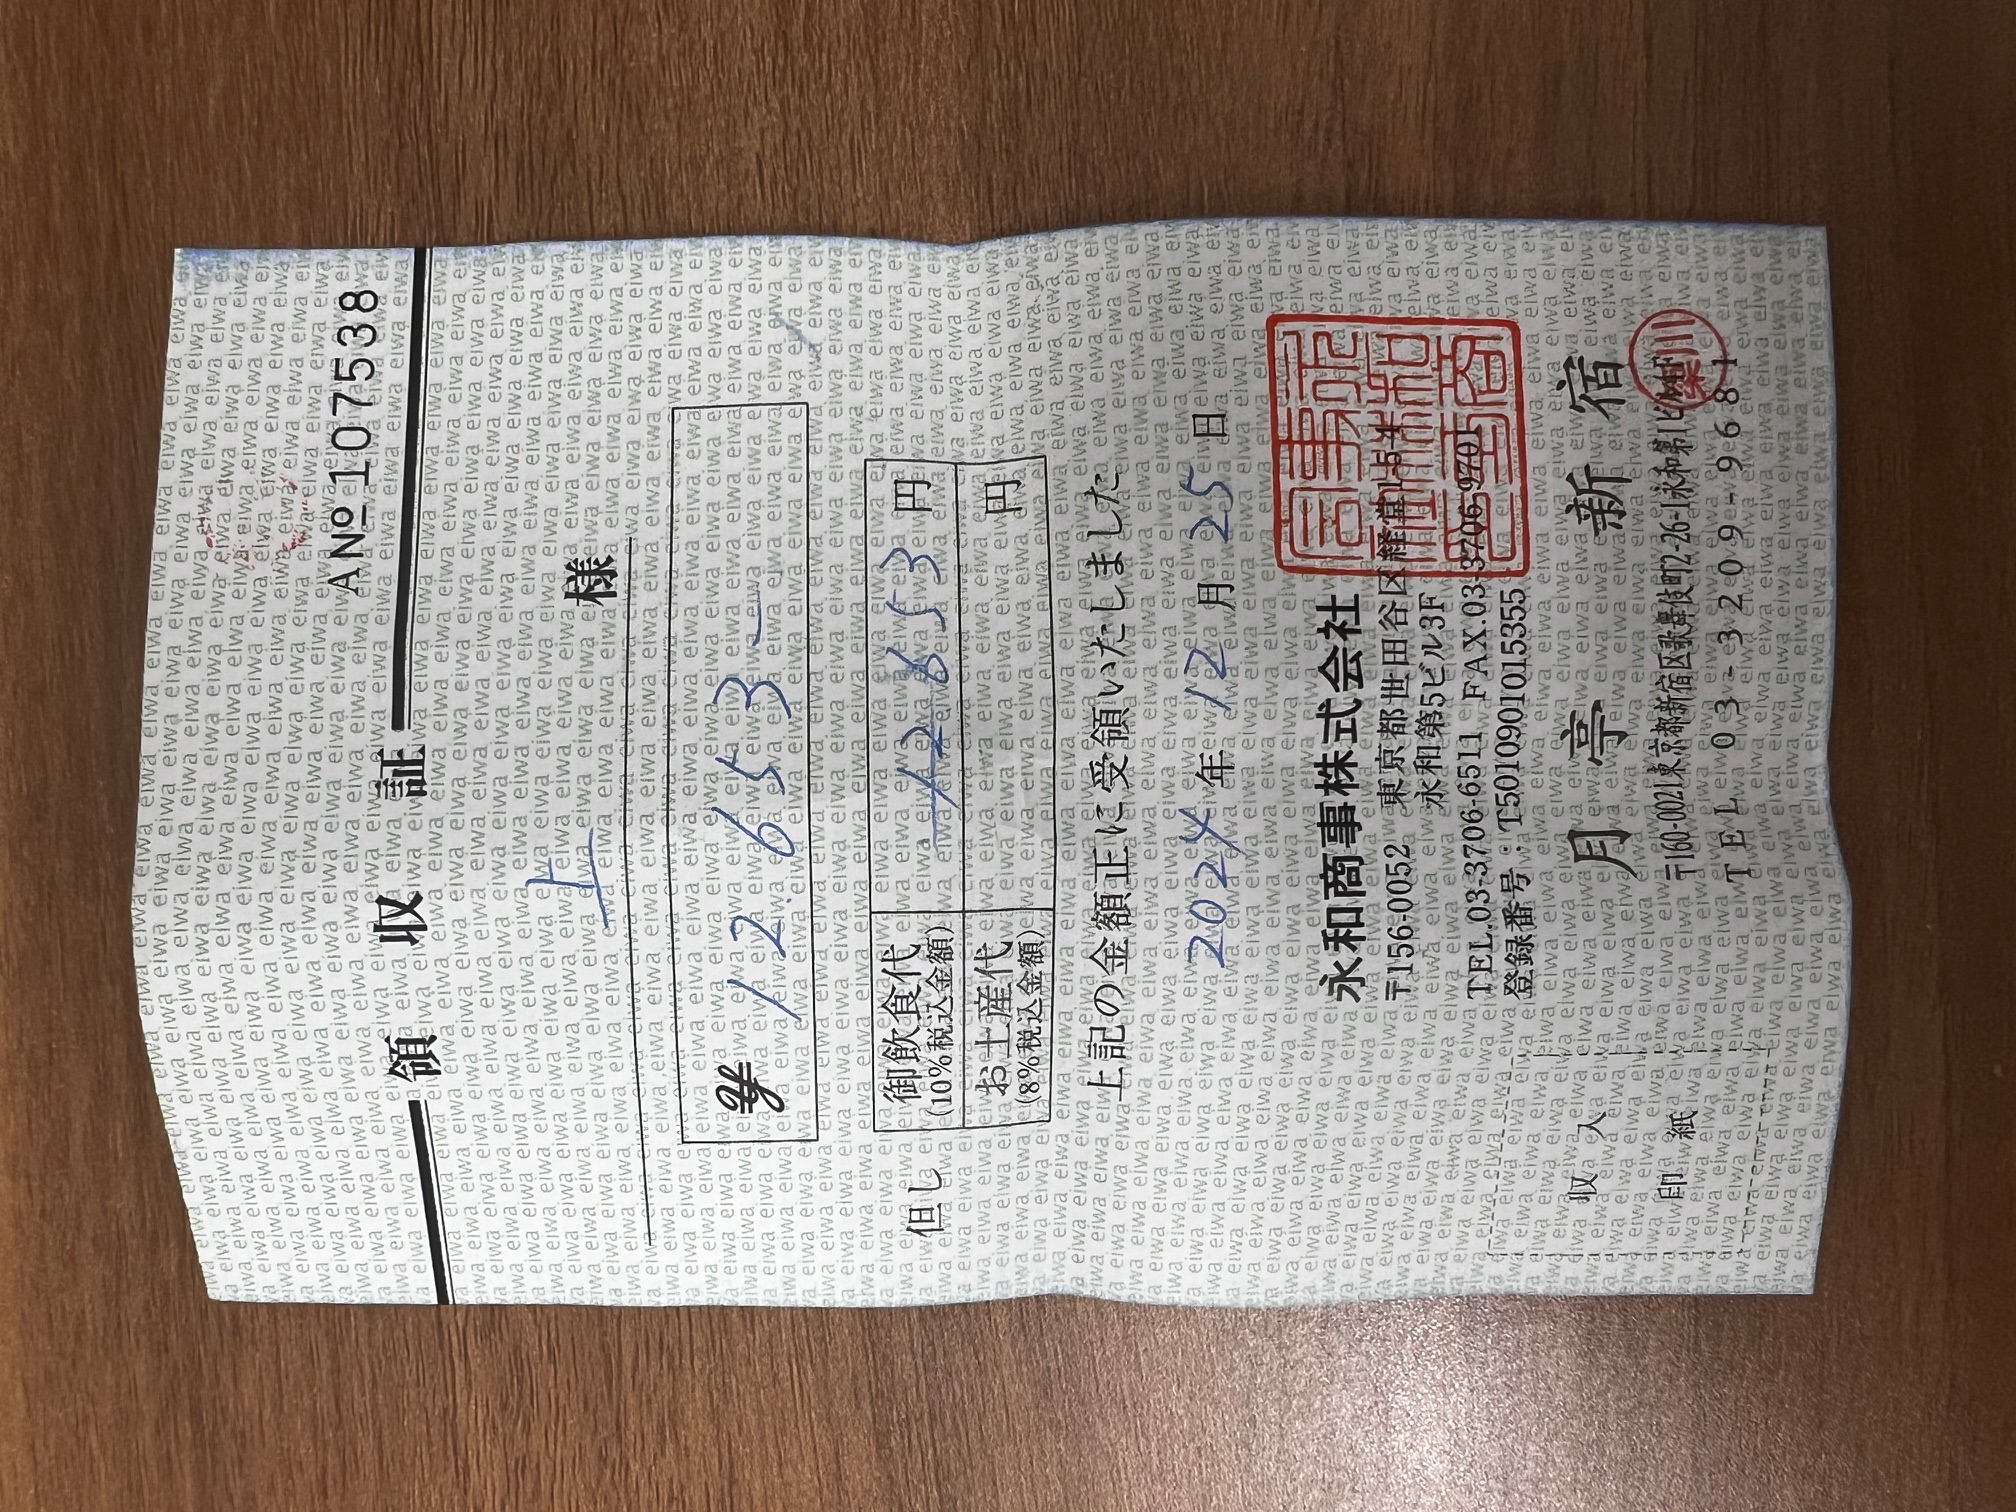 A№107538
領収証
上 様
¥ 12.653-
但し 御飲食代 12653 円
(10%税込金額)
お土産代 円
(8%税込金額)
上記の金額正に受領いたしました
2024年12月25日
永和商事株式会社
〒156-0052 東京都世田谷区経堂1-5-4
永和第5ビル3F
TEL.03-3706-6511 FAX.03-3706-9701
登録番号：T5010901015355
収入
印紙
月亭 新宿
〒160-0021東京都新宿区歌舞伎町2-26-1永和第1ビル
TEL 03-3209-9681